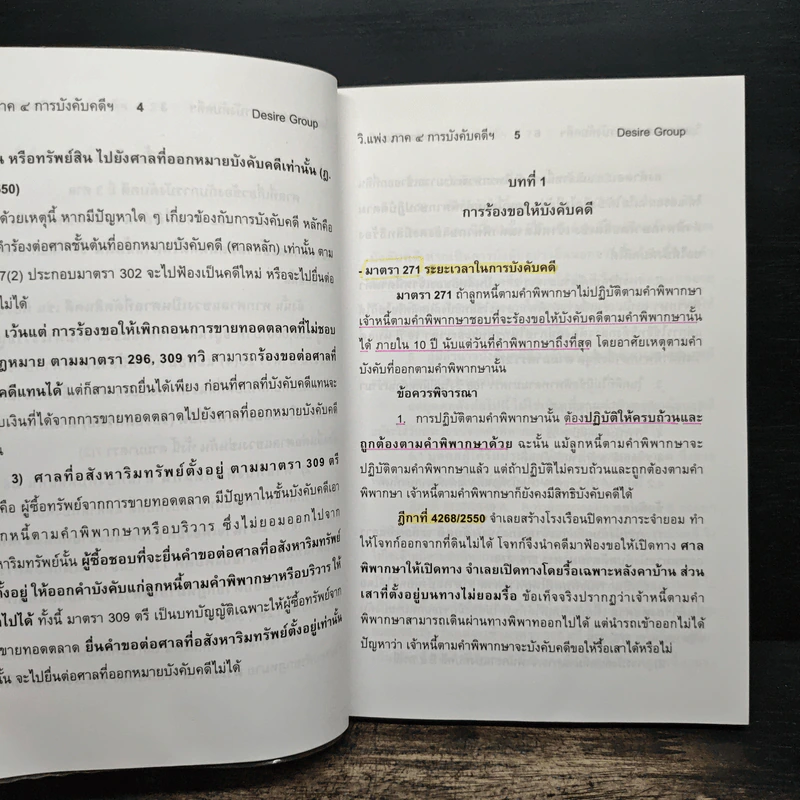 ภาค ๔ การบังคับคดีฯ 4 Desire Group
หรือทรัพย์สิน ไปยังศาลที่ออกหมายบังคับคดีเท่านั้น (ฎ.
50)
ด้วยเหตุนี้ หากมีปัญหาใด ๆ เกี่ยวข้องกับการบังคับคดี หลักคือ
คำร้องต่อศาลชั้นต้นที่ออกหมายบังคับคดี (ศาลหลัก) เท่านั้น ตาม
7(2) ประกอบมาตรา 302 จะไปฟ้องเป็นคดีใหม่ หรือจะไปยื่นต่อ
ไม่ได้
เว้นแต่ การร้องขอให้เพิกถอนการขายทอดตลาดที่ไม่ชอบ
กฎหมาย ตามมาตรา 296, 309 ทวิ สามารถร้องขอต่อศาลที่
คดีแทนได้ แต่ก็สามารถยื่นได้เพียง ก่อนที่ศาลที่บังคับคดีแทนจะ
บเงินที่ได้จากการขายทอดตลาดไปยังศาลที่ออกหมายบังคับคดี
น
3) ศาลที่อสังหาริมทรัพย์ตั้งอยู่ ตามมาตรา 309 ตรี
คือ ผู้ซื้อทรัพย์จากการขายทอดตลาด มีปัญหาในชั้นบังคับคดีเอา
ลูกหนี้ตามคำพิพากษาหรือบริวาร ซึ่งไม่ยอมออกไปจาก
หาริมทรัพย์นั้น ผู้ซื้อชอบที่จะยื่นคำขอต่อศาลที่อสังหาริมทรัพย์
ตั้งอยู่ ให้ออกคำบังคับแก่ลูกหนี้ตามคำพิพากษาหรือบริวาร ให้
ไปได้ ทั้งนี้ มาตรา 309 ตรี เป็นบทบัญญัติเฉพาะให้ผู้ซื้อทรัพย์จาก
ขายทอดตลาด ยื่นคำขอต่อศาลที่อสังหาริมทรัพย์ตั้งอยู่เท่านั้น
นั้น จะไปยื่นต่อศาลที่ออกหมายบังคับคดีไม่ได้
วิ.แพ่ง ภาค ๔ การบังคับคดีฯ 5 Desire Group
บทที่ 1
การร้องขอให้บังคับคดี
- มาตรา 271 ระยะเวลาในการบังคับคดี
มาตรา 271 ถ้าลูกหนี้ตามคำพิพากษาไม่ปฏิบัติตามคำพิพากษา
เจ้าหนี้ตามคำพิพากษาชอบที่จะร้องขอให้บังคับคดีตามคำพิพากษานั้น
ได้ ภายใน 10 ปี นับแต่วันที่คำพิพากษาถึงที่สุด โดยอาศัยเหตุตามคำ
บังคับที่ออกตามคำพิพากษานั้น
ข้อควรพิจารณา
1. การปฏิบัติตามคำพิพากษานั้น ต้องปฏิบัติให้ครบถ้วนและ
ถูกต้องตามคำพิพากษาด้วย ฉะนั้น แม้ลูกหนี้ตามคำพิพากษาจะ
ปฏิบัติตามคำพิพากษาแล้ว แต่ถ้าปฏิบัติไม่ครบถ้วนและถูกต้องตามคำ
พิพากษา เจ้าหนี้ตามคำพิพากษาก็ยังคงมีสิทธิบังคับคดีได้
ฎีกาที่ 4268/2550 จำเลยสร้างโรงเรือนปิดทางภาระจำยอม ทำ
ให้โจทก์ออกจากที่ดินไม่ได้ โจทก์จึงนำคดีมาฟ้องขอให้เปิดทาง ศาล
พิพากษาให้เปิดทาง จำเลยเปิดทางโดยรื้อเฉพาะหลังคาบ้าน ส่วน
เสาที่ตั้งอยู่บนทางไม่ยอมรื้อ ข้อเท็จจริงปรากฏว่าเจ้าหนี้ตามคำ
พิพากษาสามารถเดินผ่านทางพิพาทออกไปได้ แต่นำรถเข้าออกไม่ได้
ปัญหาว่า เจ้าหนี้ตามคำพิพากษาจะบังคับคดีขอให้รื้อเสาได้หรือไม่